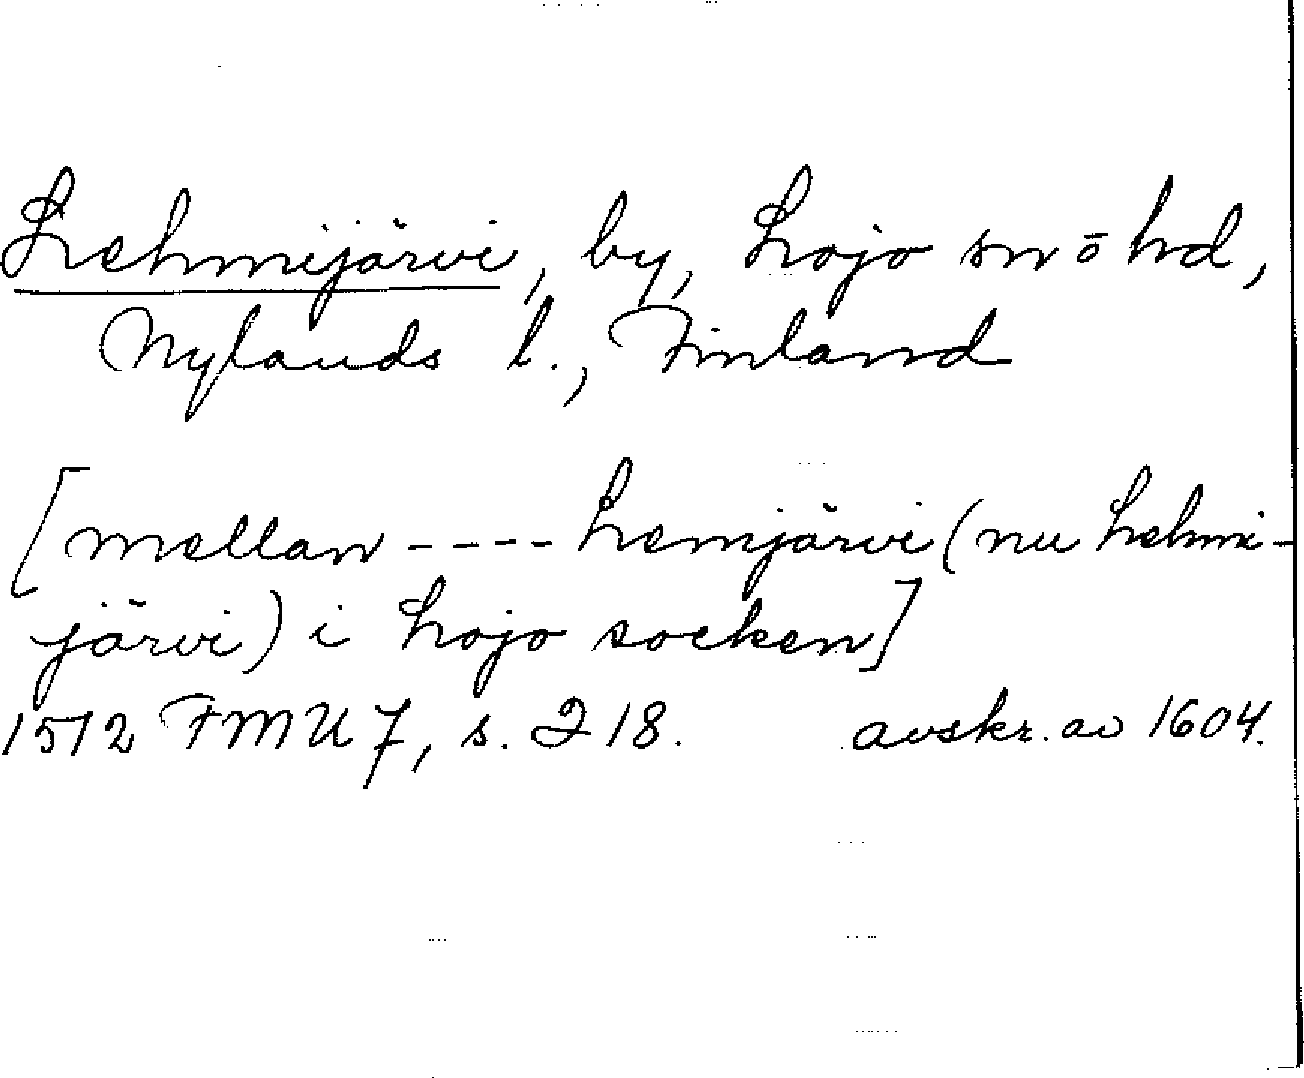 Lehmijärvi, by, Lojo sn ō hd,
Nylands l., Finland
[mellan ---- Lemjärvi (nu Lehmi-
järvi) i Lojo socken]
1512 FMU 7, s. 218. avskr. av 1604.